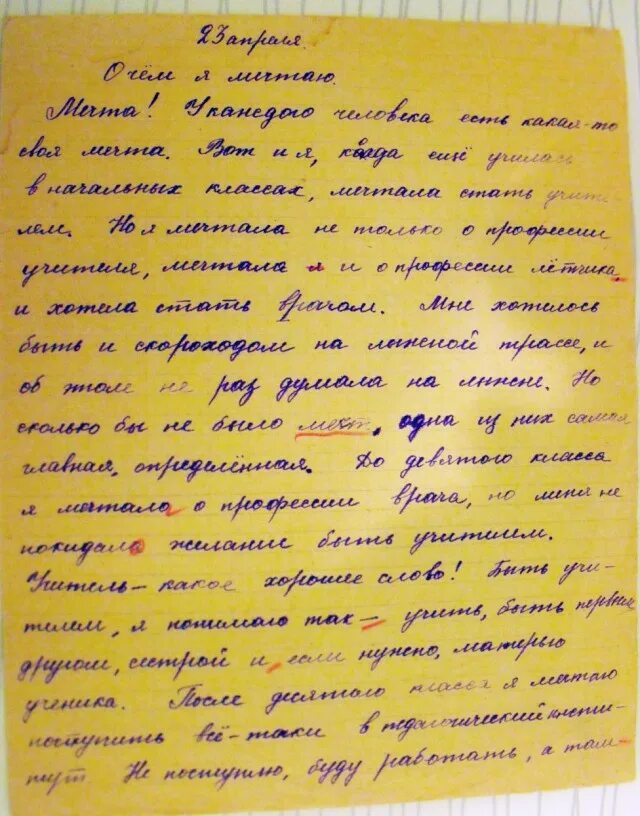 23 апреля.
О чём я мечтаю.
Мечта! У каждого человека есть какая-то
своя мечта. Вот и я, когда ещё училась
в начальных классах, мечтала стать учите
лем. Но я мечтала не только о профессии
учителя, мечтала я и о профессии лётчика,
и хотела стать врачом. Мне хотелось
быть и скороходом на лыжной трассе, и
об этом не раз думала на лыжне. Но
сколько бы не было мечт, одна из них самая
главная, определённая. До девятого класса
я мечтала о профессии врача, но меня не
покидало желание быть учителем.
Учитель – какое хорошее слово! Быть учи-
телем, я понимаю так – учить, быть первым
другом, сестрой и, если нужно, матерью
ученика. После десятого класса я мечтаю
поступить всё-таки в педагогический инсти-
тут. Не поступлю, буду работать, а там